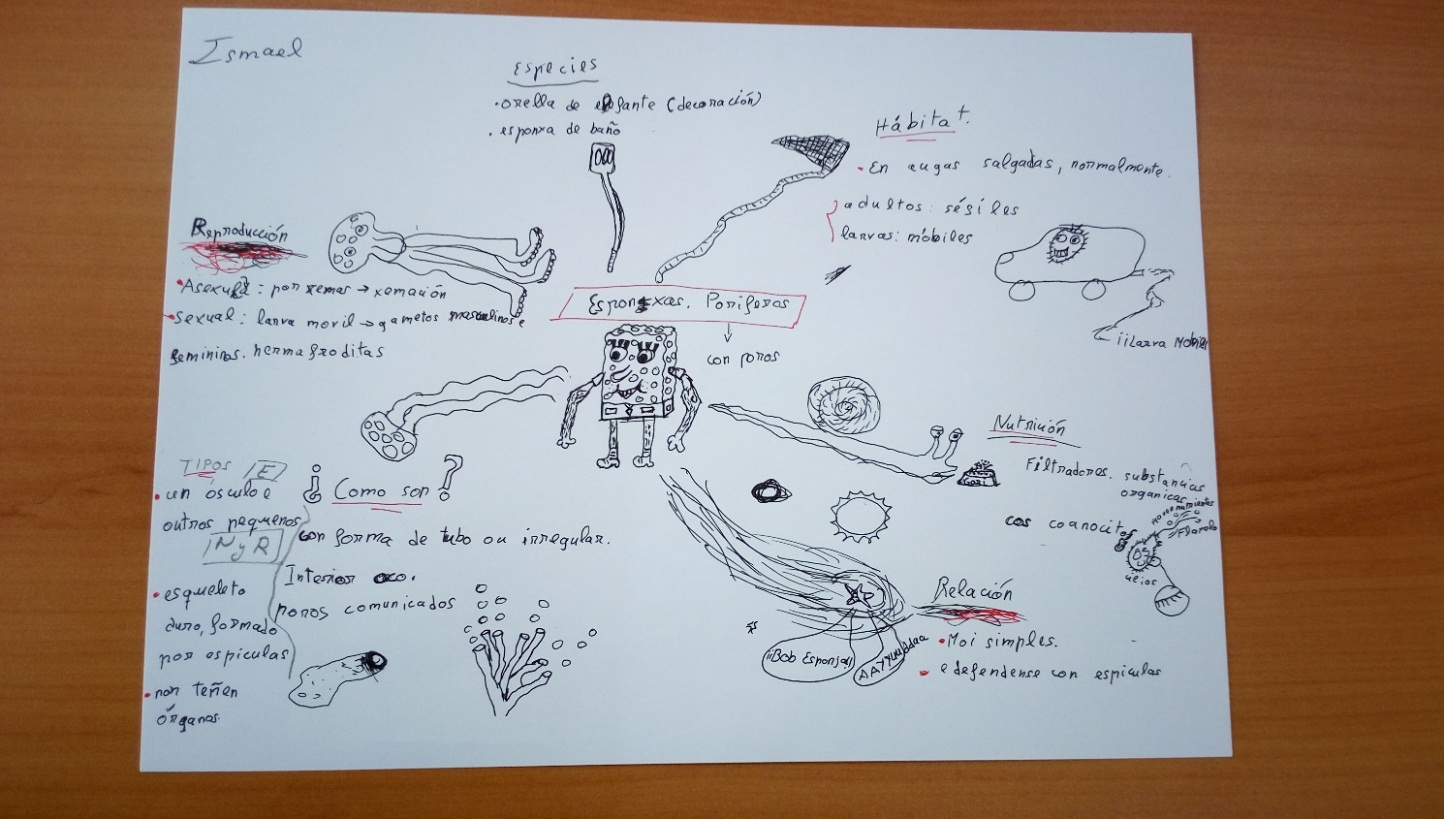 Ismael
Especies
· orella de elefante (decoración)
· esponxa de baño
Hábitat.
· En augas salgadas, normalmente.
adultos: sésiles
larvas: móbiles
¡¡Larva Mobil
Reproducción
· Asexual: por xemas → xemación
· sexual: larva movil → gametos masculinos e
femininos. hermafroditas
Esponxas. Poríferos
↓
con poros
Nutrición
Filtradores. substancias
organicas
cos coanocitos
Flaxelo
TIPOS /E/
· un ósculo e
outros pequenos
/N y R/
· esqueleto
duro, formado
por espiculas
· non teñen
órganos.
¿Como son?
con forma de tubo ou irregular.
Interior oco.
poros comunicados
Relación
· Moi simples.
· e defendense con espiculas
¡¡Bob Esponja!!
AAYYuuddaa